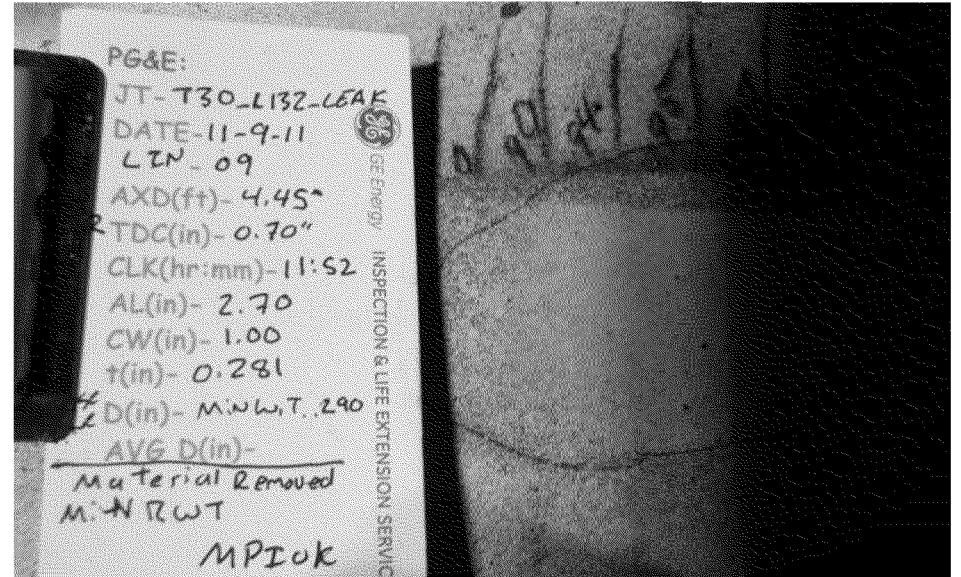 PG&E:
JT- T30_L132-LEAK
DATE-11-9-11
LIN - 09
AXD(ft)- 4.45"
TDC(in)- 0.70"
CLK(hr:mm)- 11:52
AL(in)- 2.70
CW(in)- 1.00
t(in)- 0.281
D(in)- MiNW.T. .290
AVG D(in)-
Material Removed
MiN RWT
MPIOK
GE Energy INSPECTION & LIFE EXTENSION SERVIC